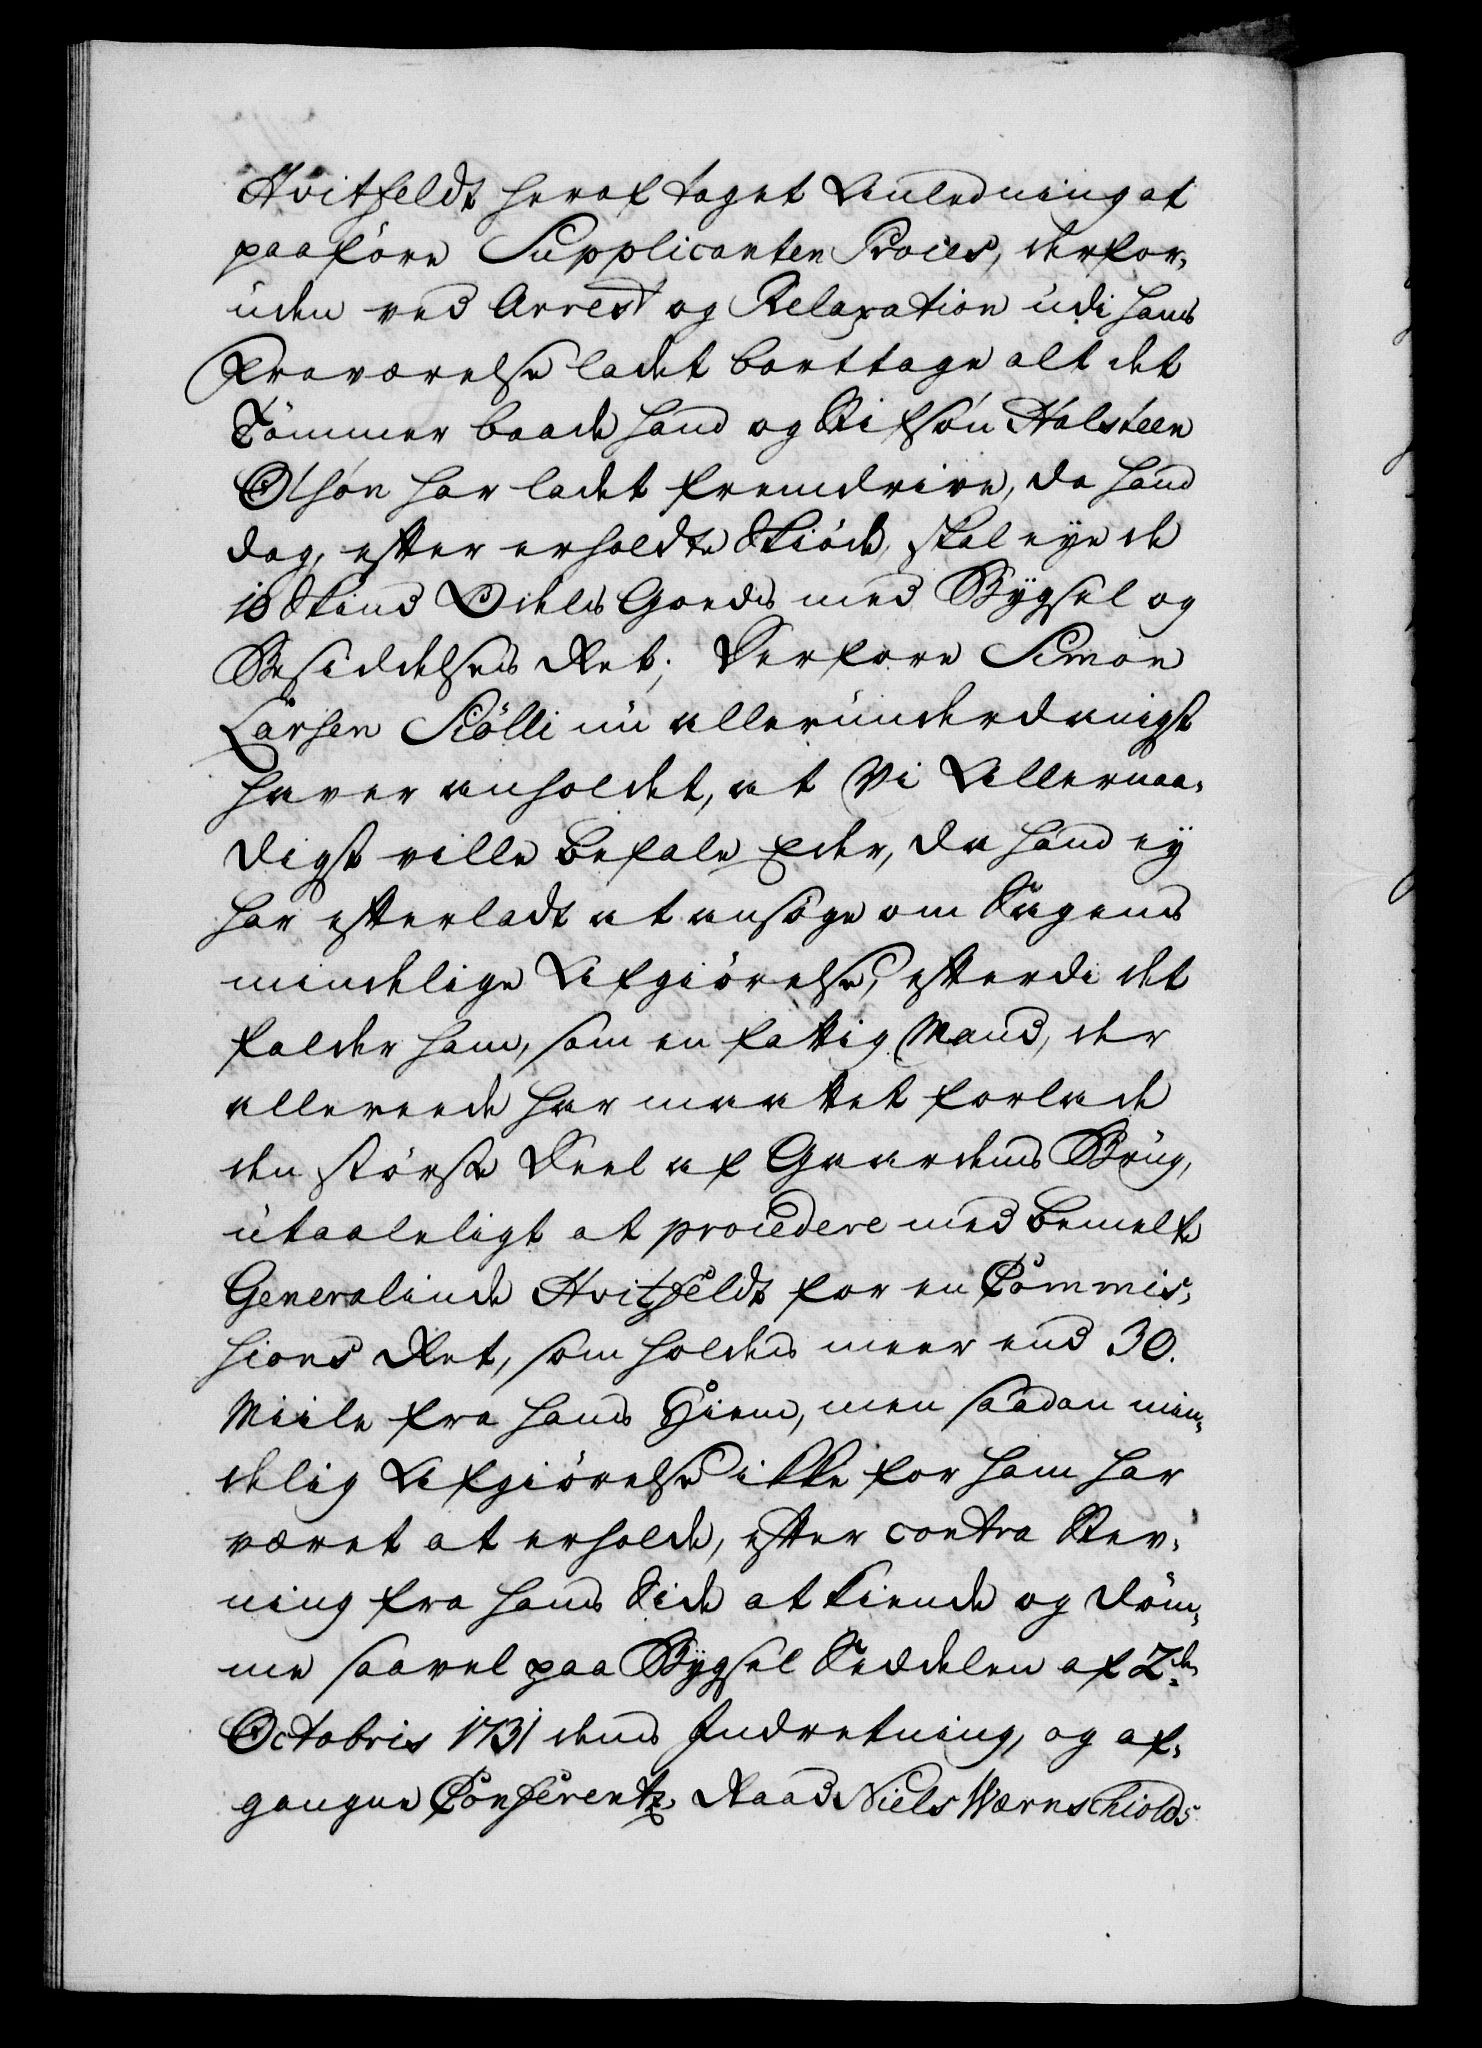 Hvitfeldt heraf taget Anledning at
paaföre Supplicanten Proces, derfor,
uden ved Arrest og Relaxation udi hans
Fraværelse ladet borttage alt det
Tömmer baade hand og Stifsön Halsteen
Olsön har ladet fremdrive, da hand
dog, efter erholdte Skiöde, skal eye de
10 Skind Odels Goeds med Bygsel og
Besiddelses Ret; Derfore Simon
Larsen Sckölli nu allerunderdanigst
haver anholdet, at Vi Allernaa,
digst ville befale Eder, da hand ey
har efterladt at ansöge om Sagens
mindelige Afgiörelse, efterdi det
falder ham, som en fattig Mand, der
allereede har maattet forlade
den störste Deel af Gaardens Brug,
utaaleligt at procedere med bemelte
Generalinde Hvitfeldt for en Commis,
sions Ret, som holdes meer end 30.
Miile fra hans Hiem, men saadan min,
delig Afgiörelse ikke for ham har
været at erholde, efter contra Stev,
ning fra hans Side at kiende og döm,
me saavel paa Bygsel Seddelen af 2den
Octobris 1731 dens Indretning, og af,
gangne Conferentz Raad Niels Wærnschiolds